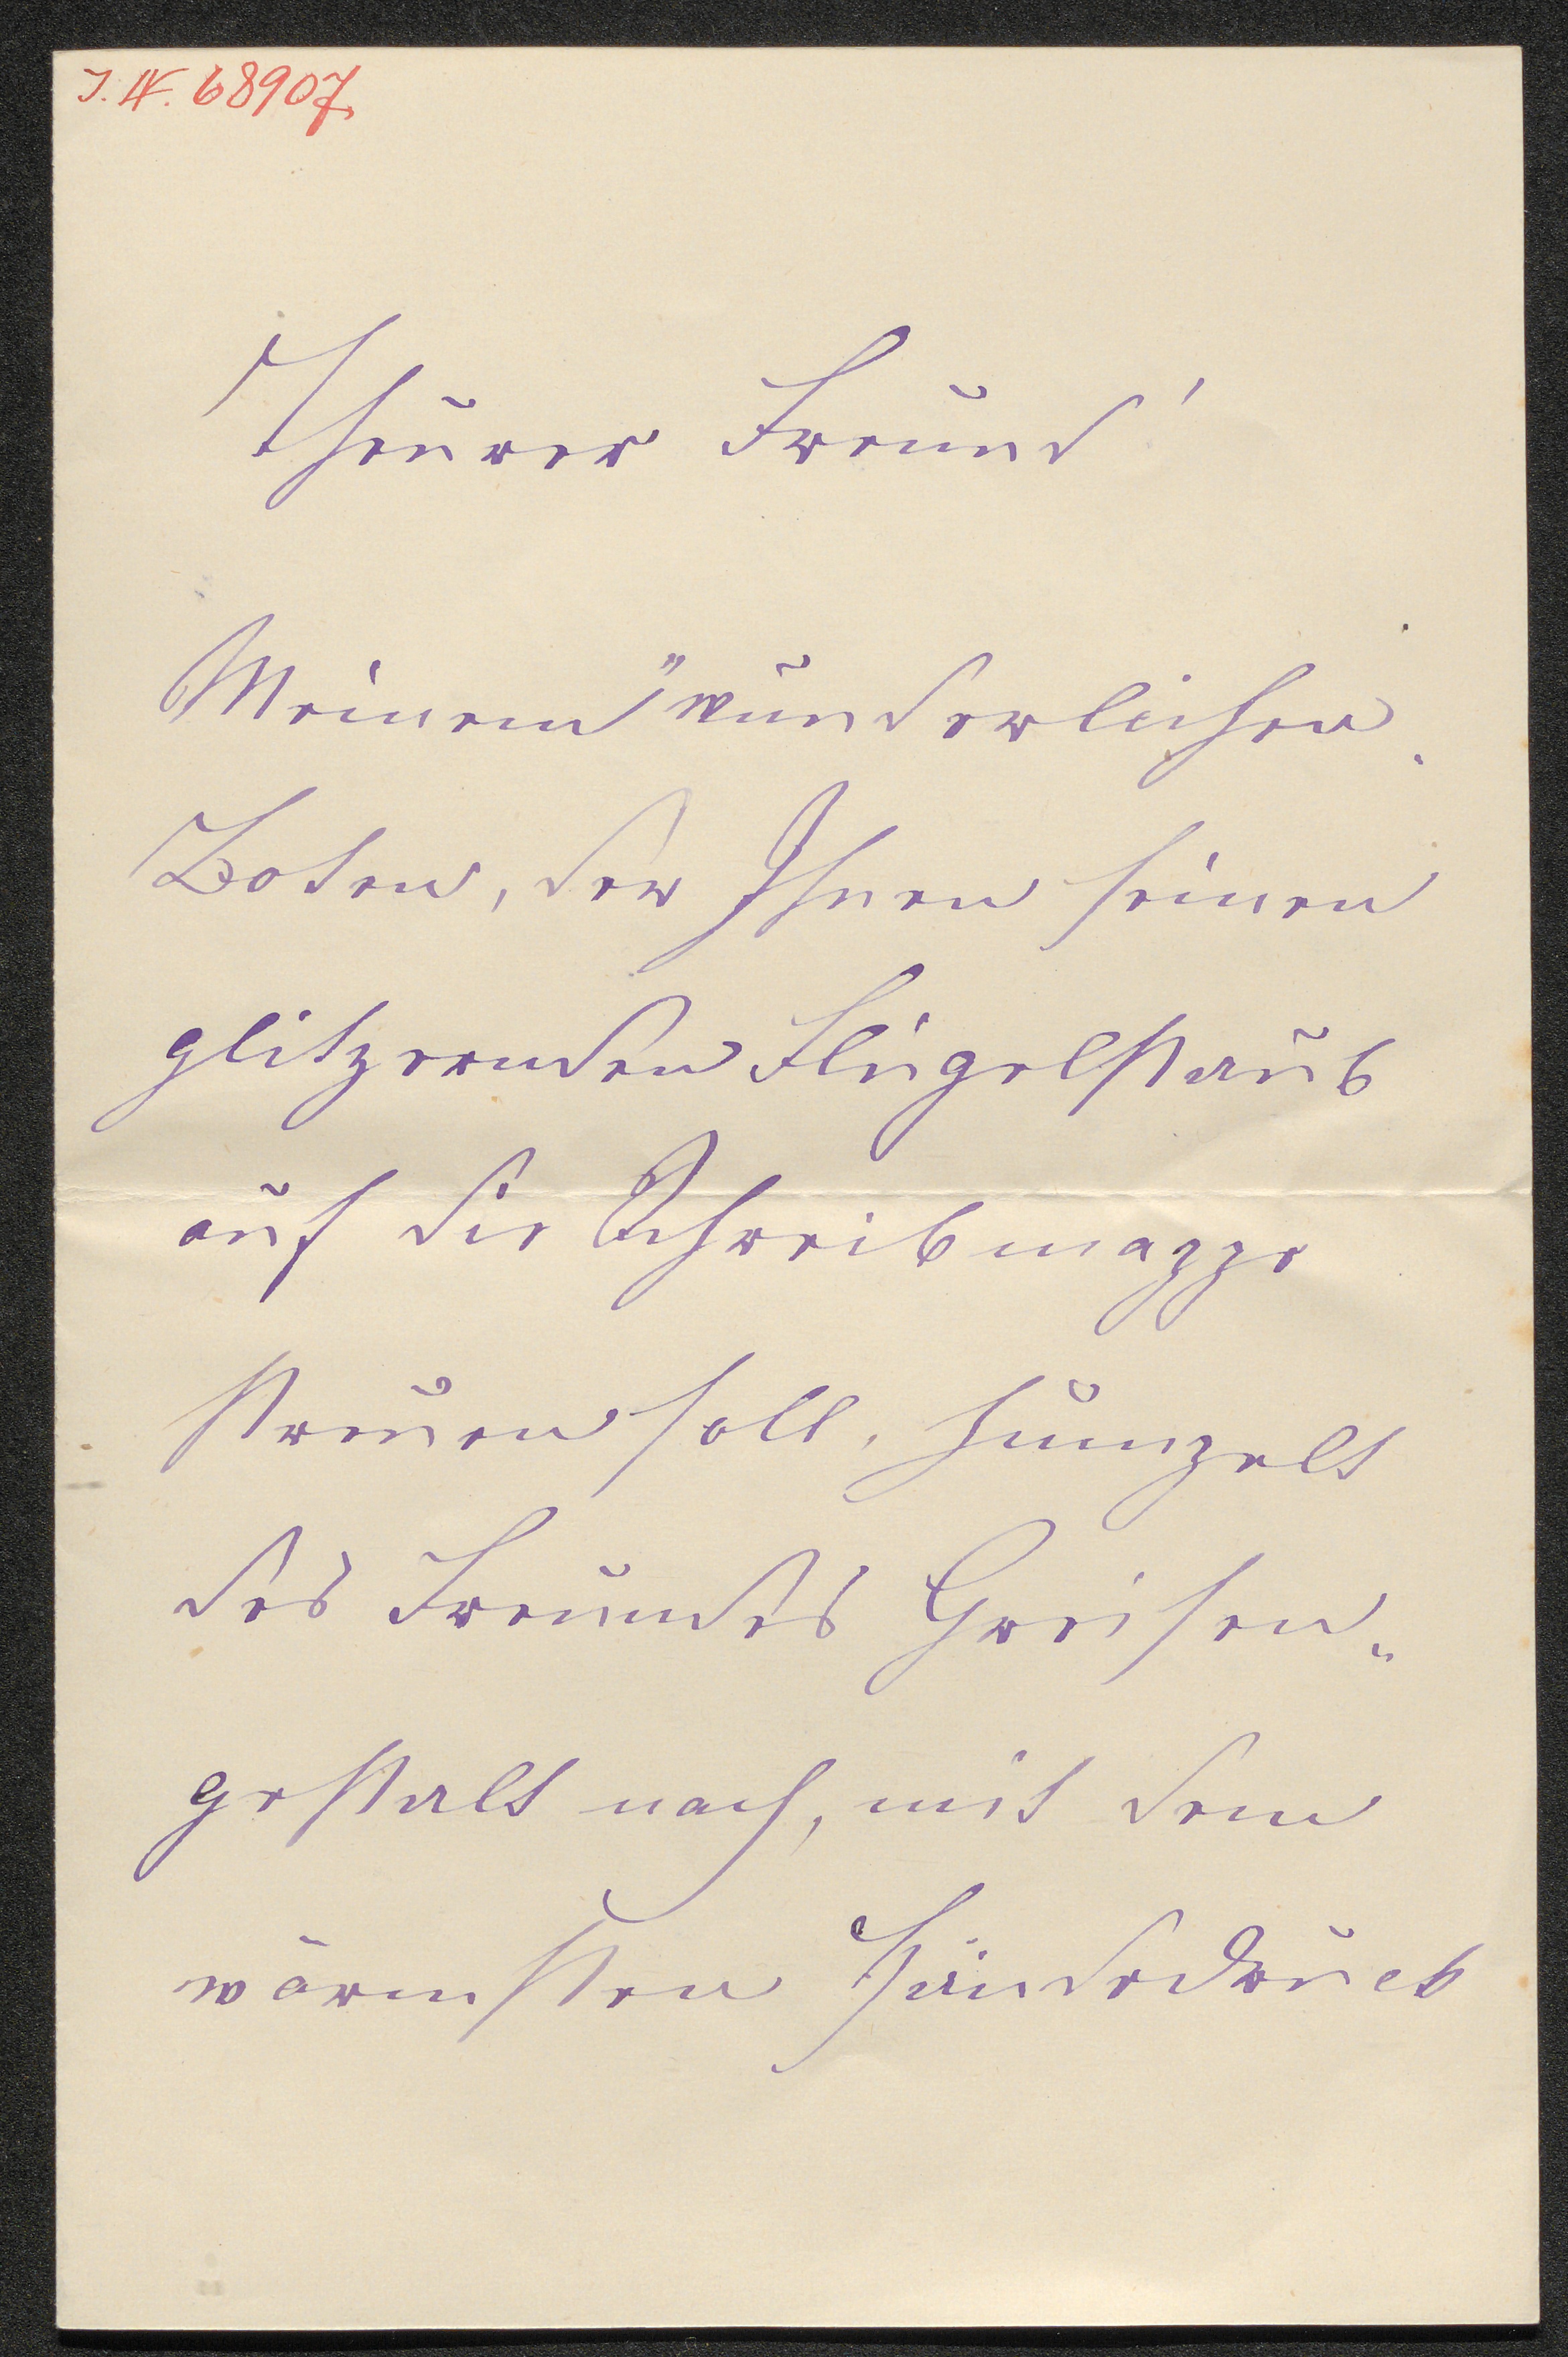 J. N. 68907
Theurer Freund!
Meinem "wunderlichen
Boten, der Ihnen seinen
glitzernden Flügelstaub
auf die Schreibmappe
streuen soll, humpelt
des Freundes Greisen„
gestalt nach, mit dem
wärmsten Händedruck